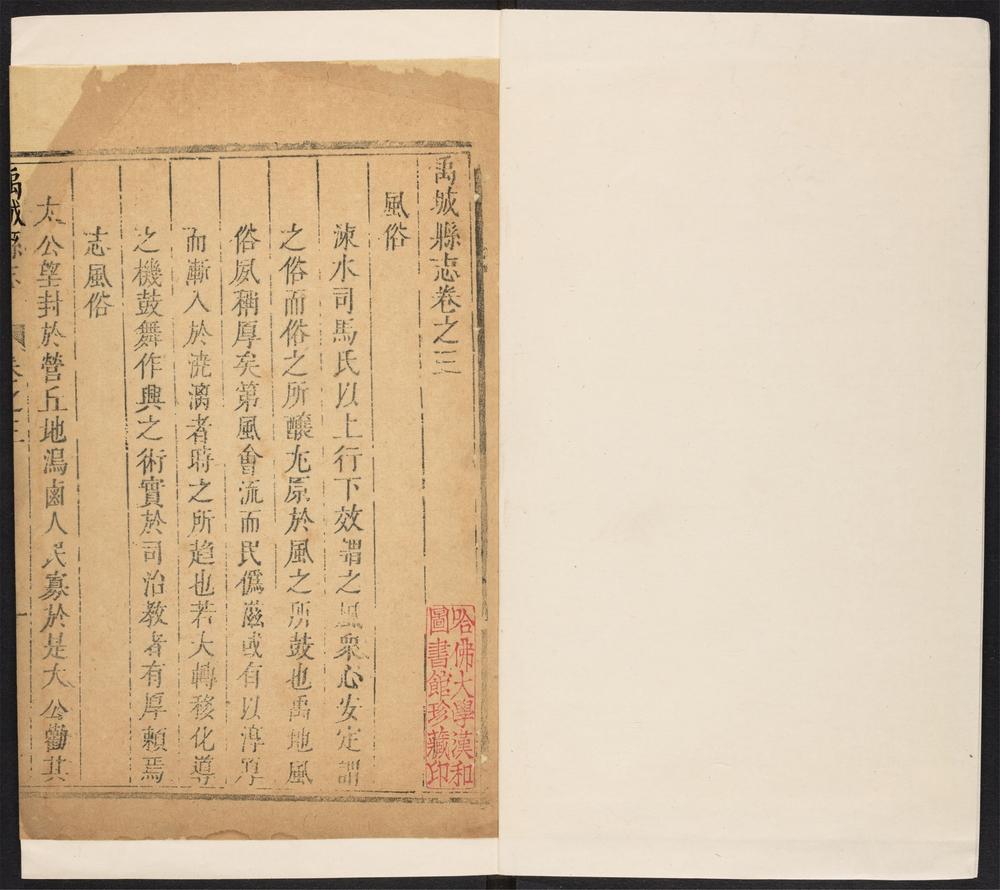 禹城縣志卷之三
風俗
涑水司馬氏以上行下效謂之風衆心安定謂
之俗而俗之所釀尤原於風之所鼓也禹地風
俗夙稱厚矣第風會流而民僞滋或有以淳
而漸入於澆漓者時之所趨也若夫轉移化導
之機鼓舞作興之術實於司治教者有厚賴焉
志風俗
太公望封於營丘地潟鹵人民寡於是太公勸其
禹城縣志 卷之三 一
哈佛大學漢和
圖書館珍藏印